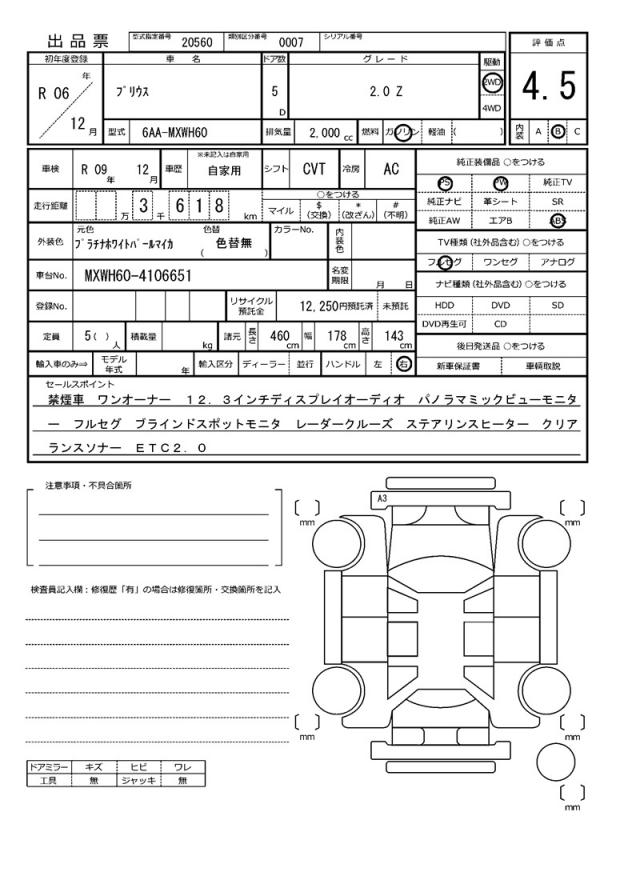 出品票 型式指定番号 20560 類別区分番号 0007 シリアル番号
評価点
4.5
内装 A B C
初年度登録 車名 ドア数 グレード 駆動
R 06 年 12 月 プリウス 5 D 2.0 Z 2WD 4WD
型式 6AA-MXWH60 排気量 2,000 cc 燃料 ガソリン 軽油 ( )
車検 R 09 年 12 月 車歴 ※未記入は自家用 自家用 シフト CVT 冷房 AC
走行距離 万 3 千 6 1 8 km ○をつける
マイル $(交換) *(改ざん) #(不明)
外装色 元色 プラチナホワイトパールマイカ 色替 ( 色替無 ) カラーNo. 内装色
車台No. MXWH60-4106651 名変期限 月 日
登録No. リサイクル預託金 12,250円預託済 未預託
定員 5( ) 人 積載量 kg 諸元 長さ 460 cm 幅 178 cm 高さ 143 cm
輸入車のみ⇒ モデル年式 年 輸入区分 ディーラー 並行 ハンドル 左 右
純正装備品 ○をつける
PS PW 純正TV
純正ナビ 革シート SR
純正AW エアB ABS
TV種類 (社外品含む) ○をつける
フルセグ ワンセグ アナログ
ナビ種類 (社外品含む) ○をつける
HDD DVD SD
DVD再生可 CD
後日発送品 ○をつける
新車保証書 車輌取説
セールスポイント
禁煙車 ワンオーナー 12.3インチディスプレイオーディオ パノラマミックビューモニタ
ー フルセグ ブラインドスポットモニタ レーダークルーズ ステアリンスヒーター クリア
ランスソナー ETC2.0
注意事項・不具合箇所
検査員記入欄:修復歴「有」の場合は修復箇所・交換箇所を記入
A3
mm
mm
mm
mm
mm
ドアミラー キズ ヒビ ワレ
工具 無 ジャッキ 無